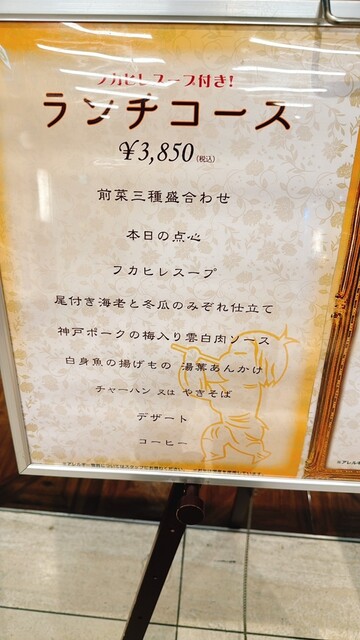 フカヒレスープ付き!
ランチコース
¥3,850(税込)
前菜三種盛合わせ
本日の点心
フカヒレスープ
尾付き海老と冬瓜のみぞれ仕立て
神戸ポークの梅入り雲白肉ソース
白身魚の揚げもの 湯葉あんかけ
チャーハン 又は やきそば
デザート
コーヒー